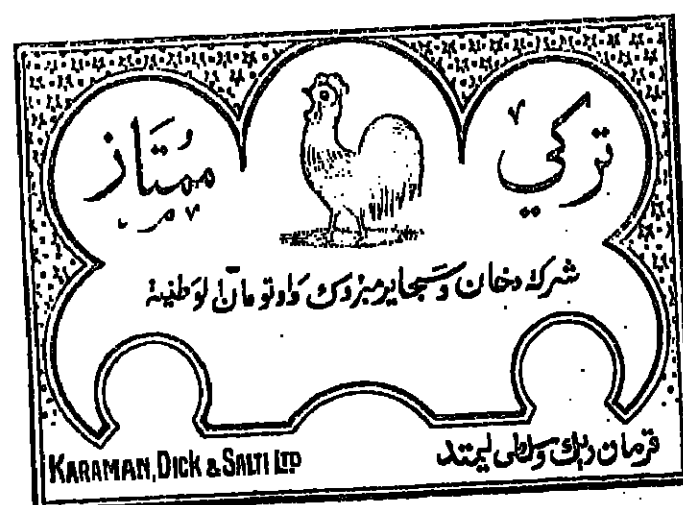 تركي مُمتَاز
شركة دخان وَسجاير مبروك وَاوتومان الوَطنية
KARAMAN, DICK & SALTI LTD
قرمان ديك وسلطى ليمتد